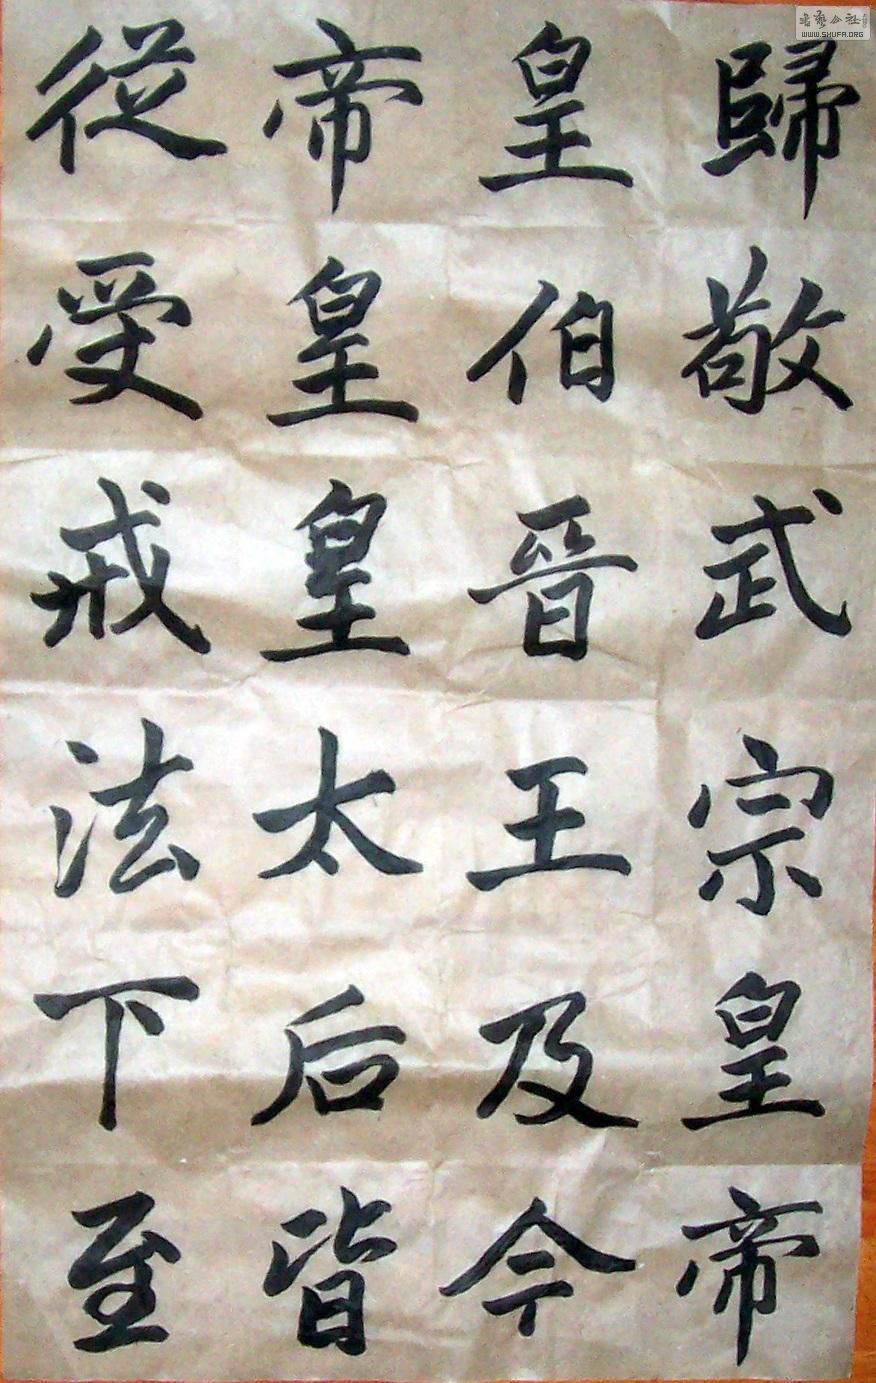 歸敬武宗皇帝
皇伯晉王及今
帝皇皇太后皆
從受戒法下至
WWW.SHUFA.ORG